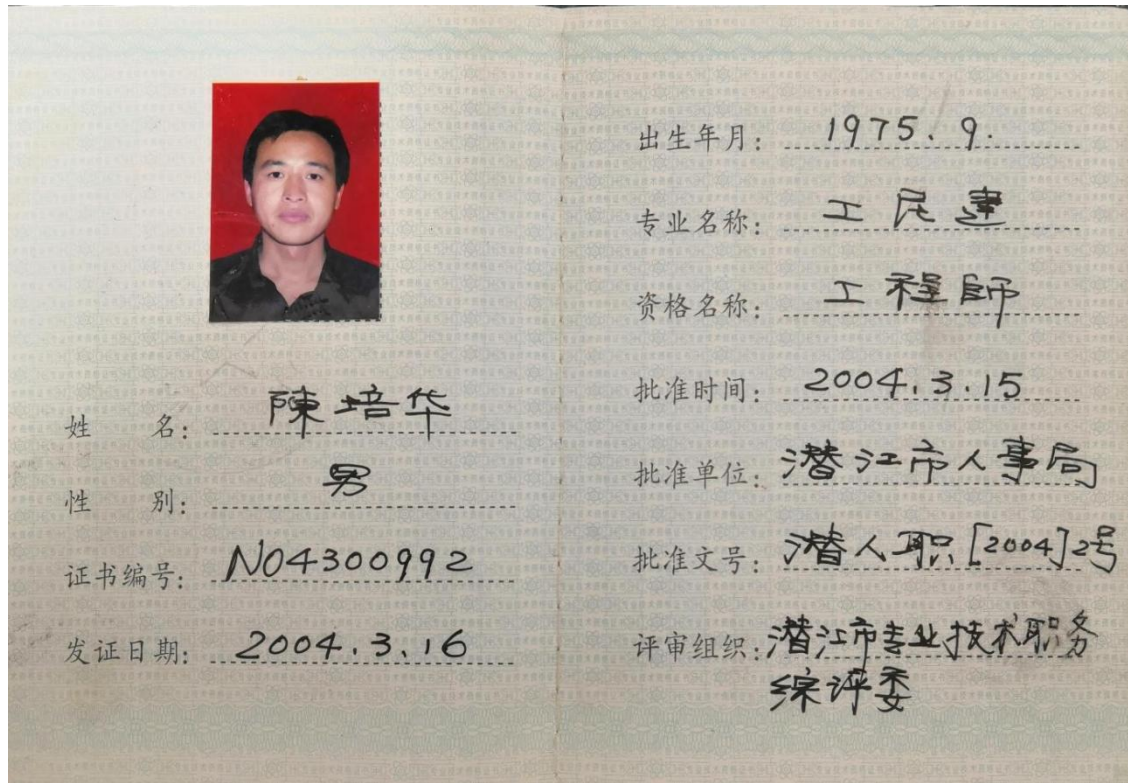 姓 名：陳培华
性 别：男
证书编号：N04300992
发证日期：2004.3.16
出生年月：1975.9.
专业名称：工民建
资格名称：工程師
批准时间：2004.3.15
批准单位：潜江市人事局
批准文号：潜人职[2004]2号
评审组织：潜江市专业技术职务
综评委